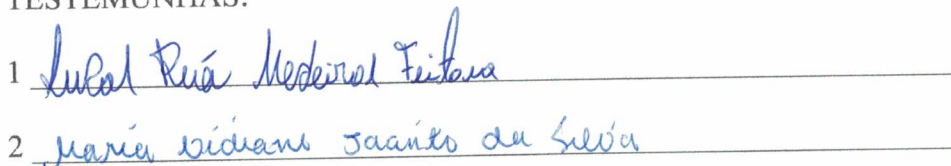 TESTEMUNHAS:
1 Lucas Ruá Medeiros Feitosa
2 Maria Vidiane Jacinto da Silva